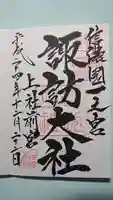 信濃國一之宮
諏訪大社
上社前宮
平成二十四年十一月二十二日